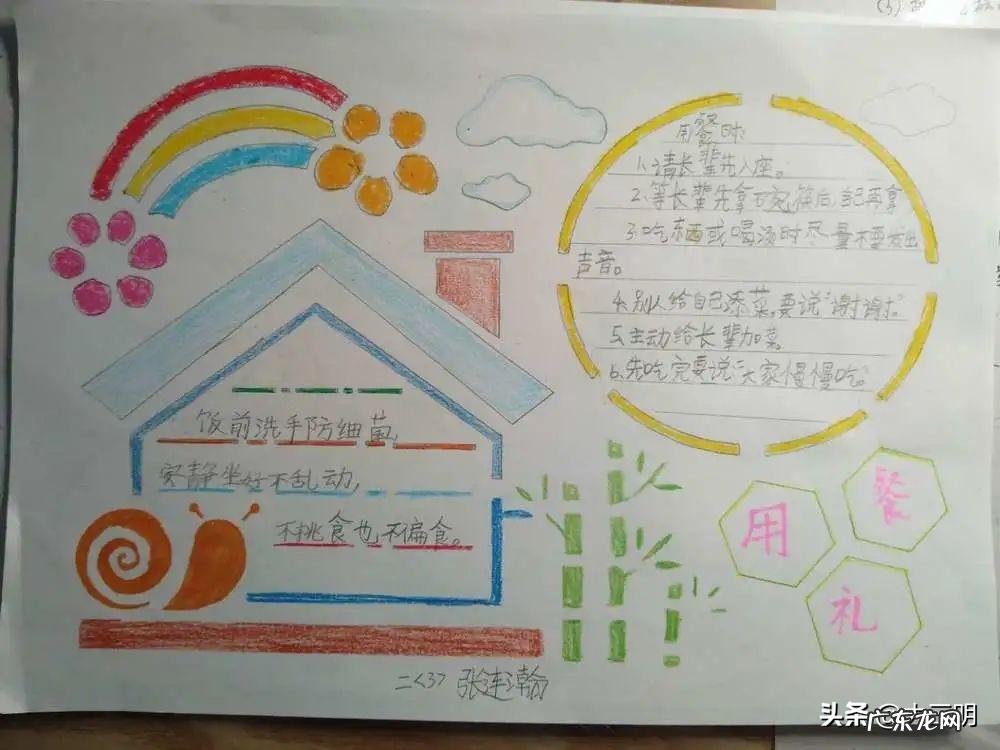 饭前洗手防细菌,
安静坐好不乱动,
不挑食也不偏食。
用餐时:
1.请长辈先入座。
2.等长辈先拿碗筷后,自己再拿
3.吃东西或喝汤时尽量不要发出
声音。
4.别人给自己添菜,要说"谢谢"。
5.主动给长辈加菜。
6.先吃完要说:"大家慢慢吃。"
用
餐
礼
二<3> 张连瀚
头条
广东龙网